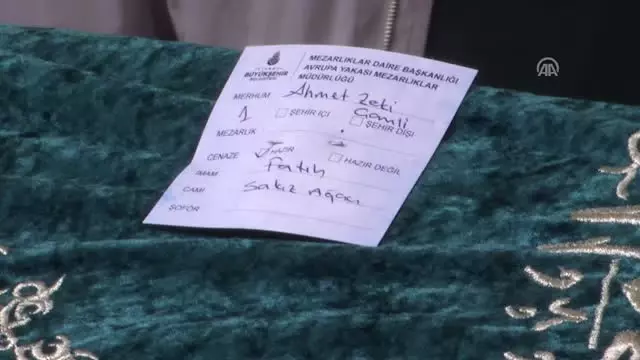 İSTANBUL
BÜYÜKŞEHİR
BELEDİYESİ
MEZARLIKLAR DAİRE BAŞKANLIĞI
AVRUPA YAKASI MEZARLIKLAR
MÜDÜRLÜĞÜ
MERHUM Ahmet Zeki
Camli
1 ŞEHİR İÇİ ŞEHİR DIŞI
MEZARLIK
CENAZE HAZIR HAZIR DEĞİL
İMAM Fatih
CAMİ Sakız Ağacı
ŞOFÖR
AA